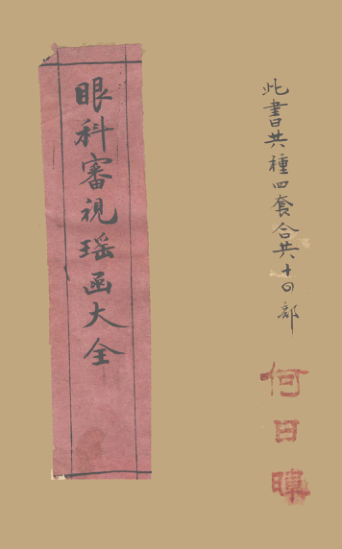 此書共種四套合共十四部
何日
眼科審視瑶函大全